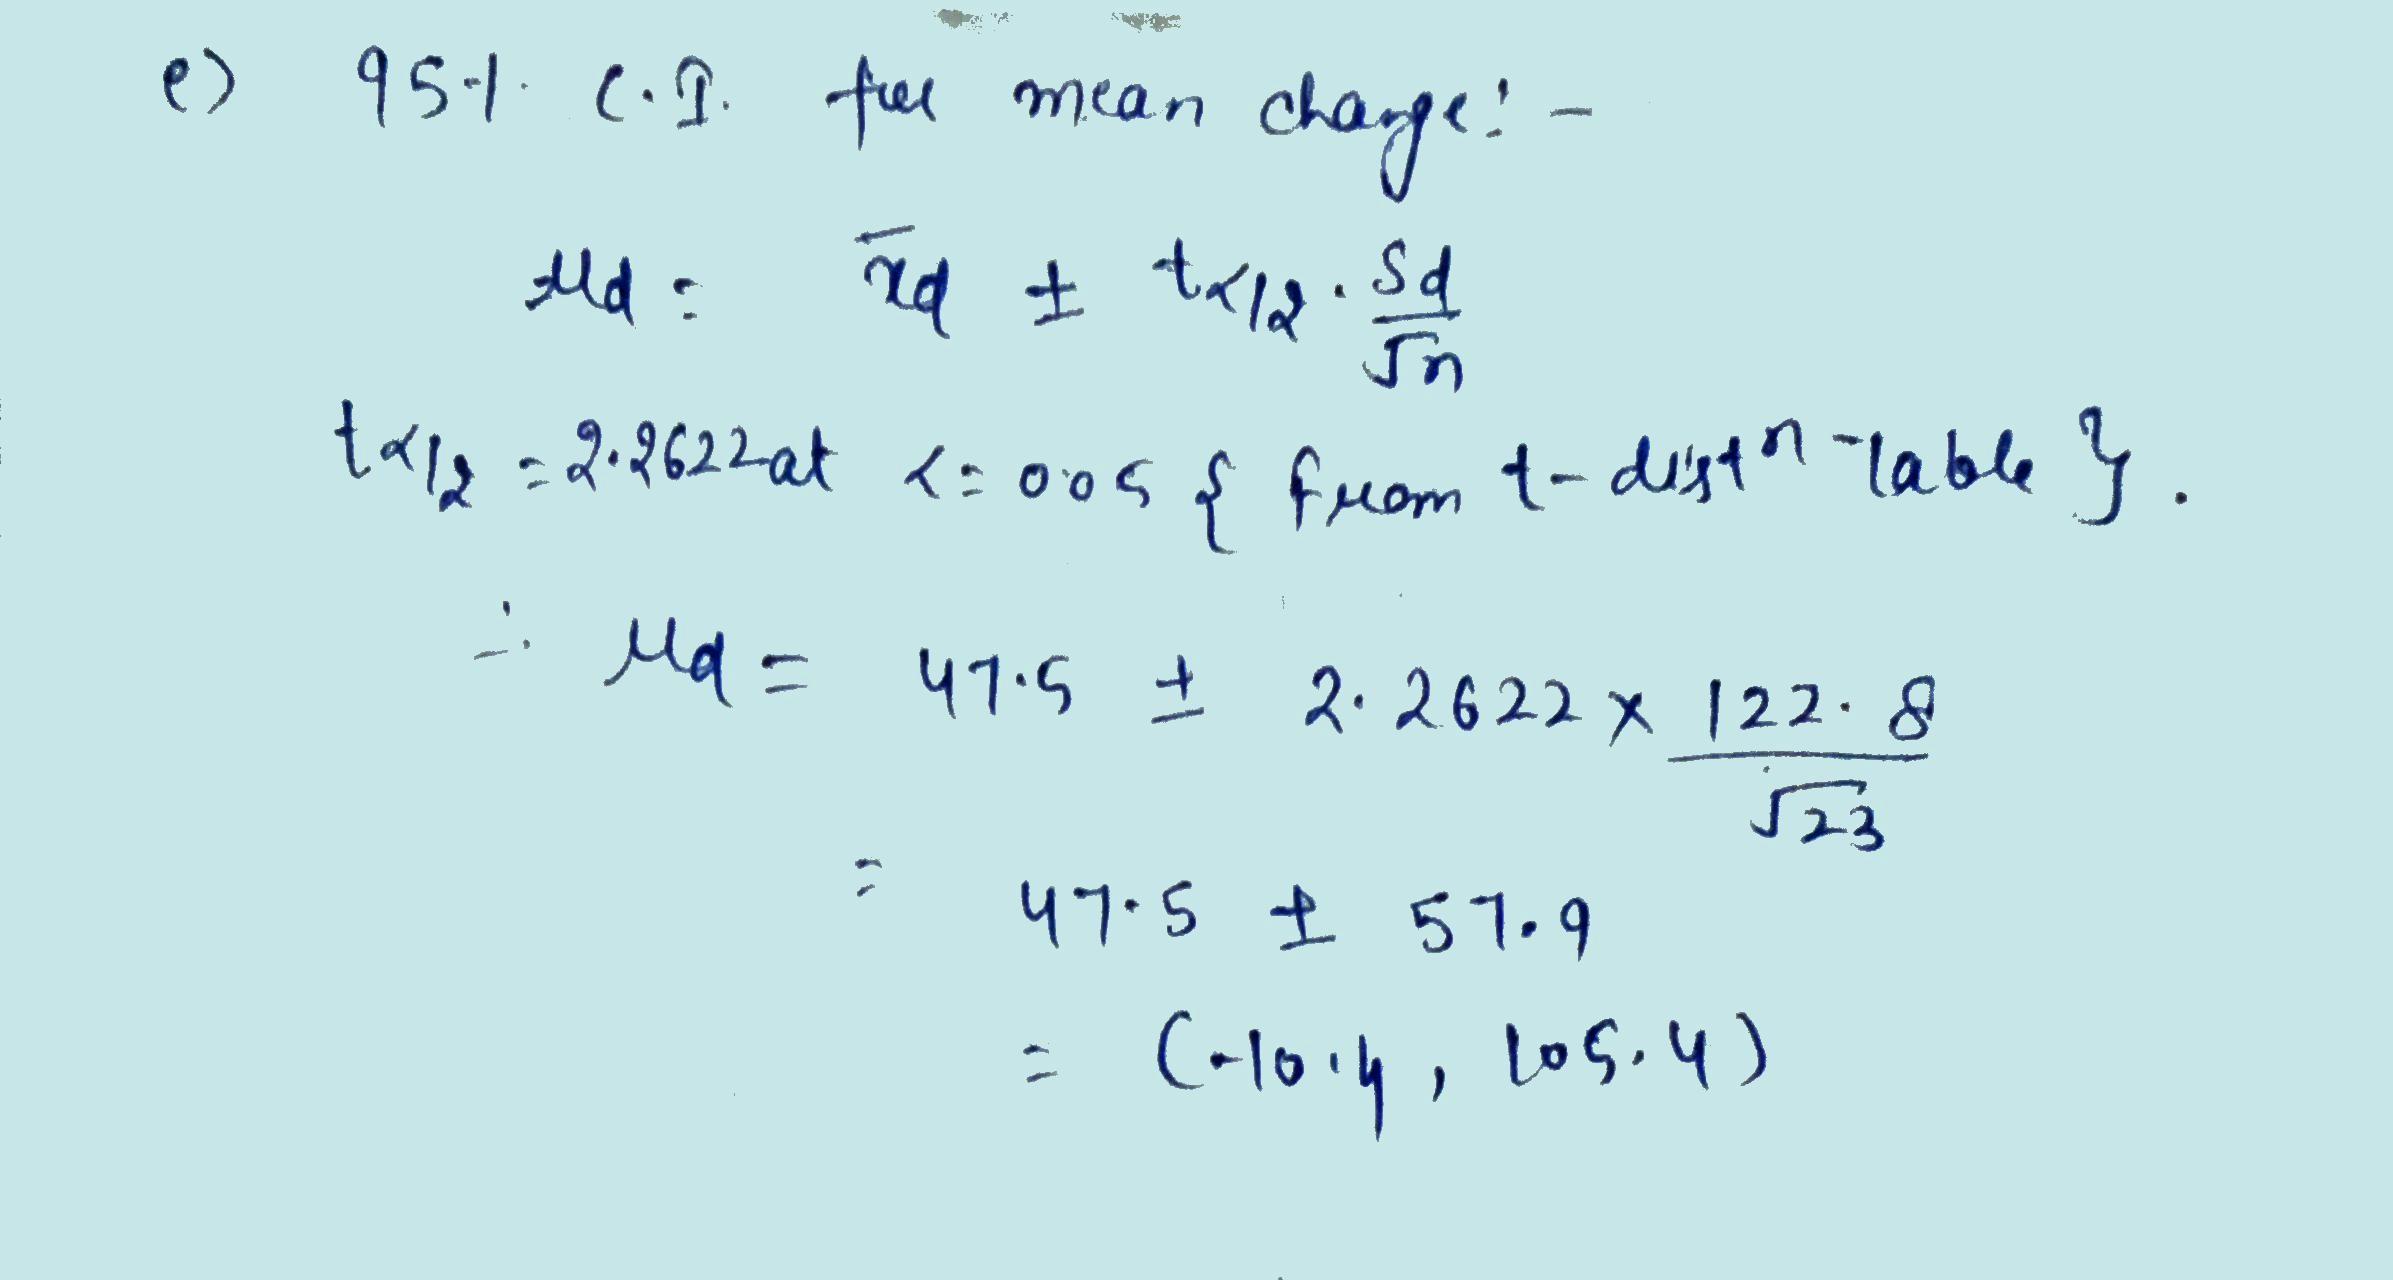 e) 95% C.I. for mean change:-
μd = x̄d ± tα/2 · Sd/√n
tα/2 = 2.2622 at α = 0.05 { from t-distⁿ-table }.
∴ μd = 47.5 ± 2.2622 × 122.8/√23
= 47.5 ± 57.9
= (-10.4, 105.4)